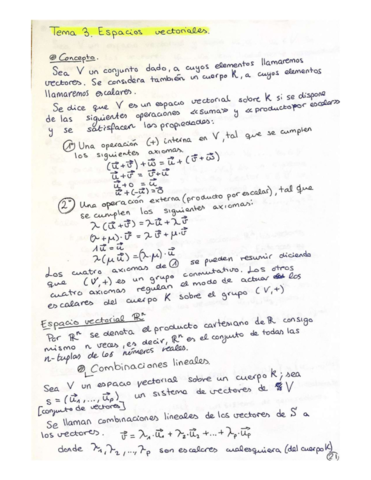 Tema 3. Espacios vectoriales.
Concepto.
Sea V un conjunto dado, a cuyos elementos llamaremos
vectores. Se considera también un cuerpo K, a cuyos elementos
llamaremos escalares.
Se dice que V es un espacio vectorial sobre K si se dispone
de las siguientes operaciones «suma» y «producto por escalar»
y se satisfacen las propiedades:
1º Una operación (+) interna en V, tal que se cumplen
los siguientes axiomas:
(u⃗+v⃗)+w⃗ = u⃗+(v⃗+w⃗)
u⃗+v⃗ = v⃗+u⃗
u⃗+0 = u⃗
u⃗+(-u⃗)=0⃗
2º Una operación externa (producto por escalar), tal que
se cumplen los siguientes axiomas:
λ(u⃗+v⃗) = λu⃗+λv⃗
(λ+μ)·v⃗ = λv⃗+μ·v⃗
1u⃗=u⃗
λ(μu⃗)=(λμ)·u⃗
Los cuatro axiomas de 1 se pueden resumir diciendo
que (V,+) es un grupo conmutativo. Los otros
cuatro axiomas regulan el modo de actuar los
escalares del cuerpo K sobre el grupo (V,+)
Espacio vectorial ℝⁿ
Por ℝⁿ se denota el producto cartesiano de ℝ consigo
mismo n veces, es decir, ℝⁿ es el conjunto de todas las
n-tuplas de los números reales.
Combinaciones lineales
Sea V un espacio vectorial sobre un cuerpo K; sea
S = (u⃗₁,...,u⃗p) un sistema de vectores de V
[conjunto de vectores]
Se llaman combinaciones lineales de los vectores de S a
los vectores. v⃗ = λ₁·u⃗₁ + λ₂·u⃗₂ + ... + λp·u⃗p
donde λ₁, λ₂, ..., λp son escalares cualesquiera (del cuerpo K)